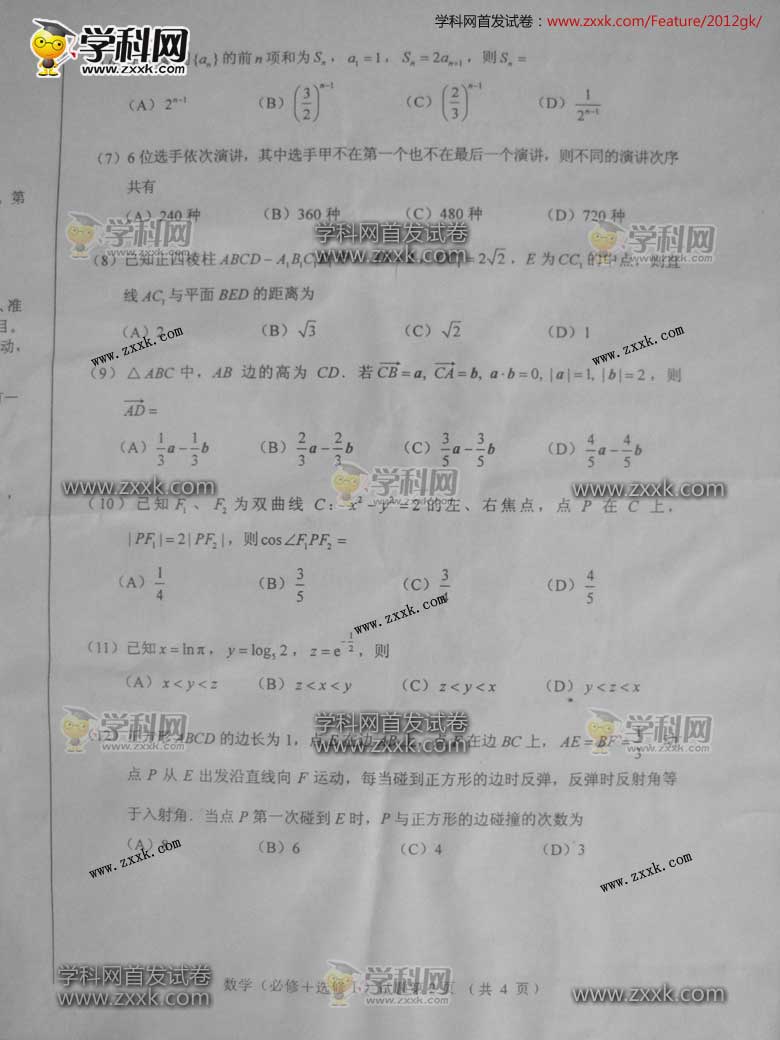 学科网首发试卷：www.zxxk.com/Feature/2012gk/
学科网
zxxk.com
{aₙ}的前n项和为Sₙ，a₁=1，Sₙ=2aₙ₊₁，则Sₙ=
（A）2ⁿ⁻¹ （B）(3/2)ⁿ⁻¹ （C）(2/3)ⁿ⁻¹ （D）1/2ⁿ⁻¹
（7）6位选手依次演讲，其中选手甲不在第一个也不在最后一个演讲，则不同的演讲次序
共有
（A）240种 （B）360种 （C）480种 （D）720种
学科网 学科网首发试卷 学科网
www.zxxk.com
（8）已知正四棱柱ABCD-A₁B₁C₁ =2√2，E为CC₁的中点，则直
线AC₁与平面BED的距离为
（A）2 （B）√3 （C）√2 （D）1
www.zxxk.com www.zxxk.com
（9）△ABC中，AB边的高为CD．若CB=a, CA=b, a·b=0, |a|=1, |b|=2，则
AD=
（A）1/3a-1/3b （B）2/3a-2/3b （C）3/5a-3/5b （D）4/5a-4/5b
www.zxxk.com 学科网 www.zxxk.com
（10）已知F₁、F₂为双曲线C：x²-y²=2的左、右焦点，点P在C上，
|PF₁|=2|PF₂|，则cos∠F₁PF₂=
（A）1/4 （B）3/5 （C）3/4 （D）4/5
www.zxxk.com
（11）已知x=lnπ，y=log₅2，z=e^(-1/2)，则
（A）x<y<z （B）z<x<y （C）z<y<x （D）y<z<x
学科网 学科网首发试卷 学科网
www.zxxk.com
（12）正方形ABCD的边长为1，点E在边AB 在边BC上，AE=BF=1/3
点P从E出发沿直线向F运动，每当碰到正方形的边时反弹，反弹时反射角等
于入射角．当点P第一次碰到E时，P与正方形的边碰撞的次数为
（A）8 （B）6 （C）4 （D）3
www.zxxk.com www.zxxk.com
学科网首发试卷 学科网 学科网首发试卷
www.zxxk.com www.zxxk.com
数学（必修+选修Ⅰ）试题第2页（共4页）
第
准
目。
动，